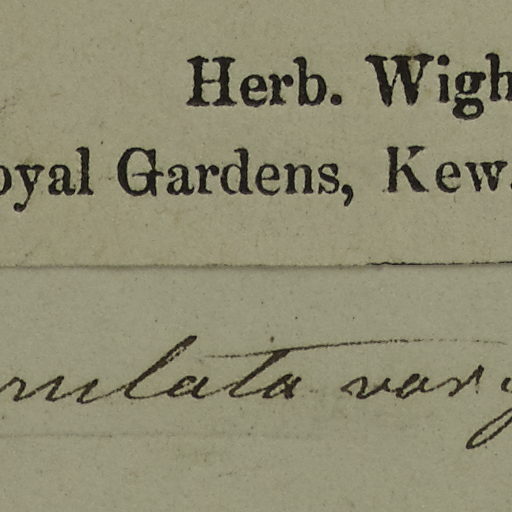 Herb. Wigh
oyal Gardens, Kew.
rulata var